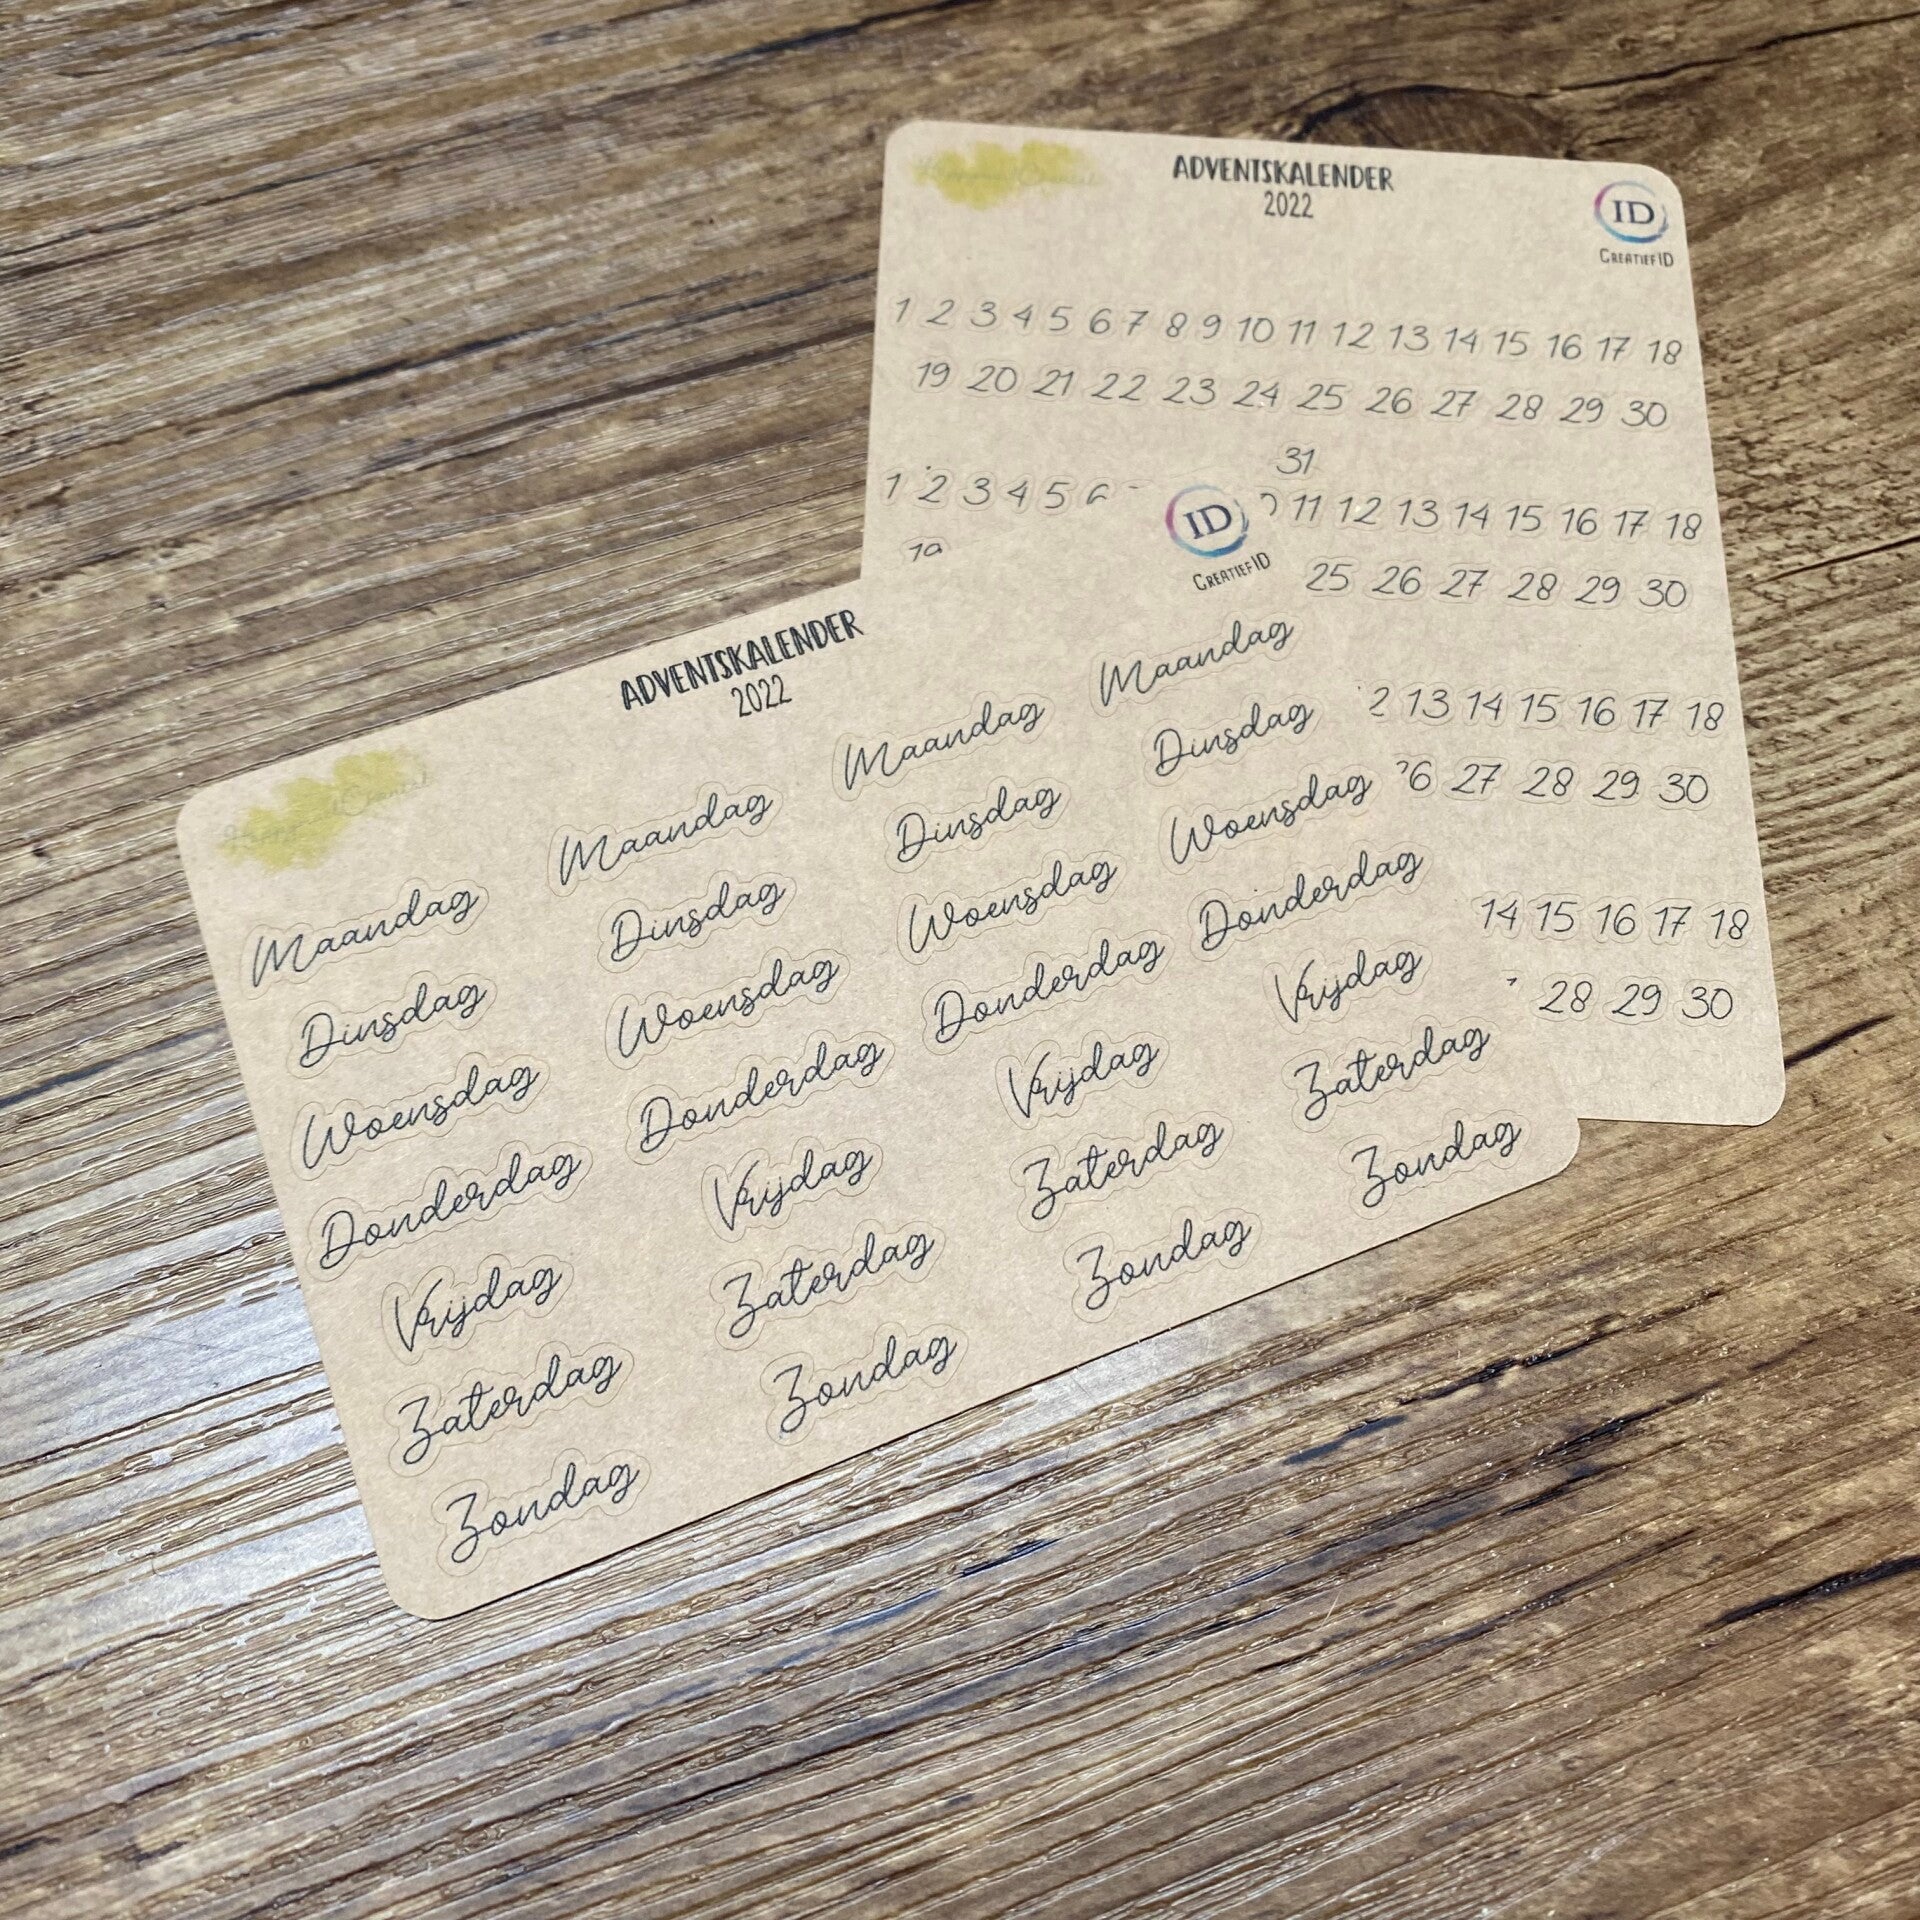 ADVENTSKALENDER
2022
ID
CREATIEFID
1 2 3 4 5 6 7 8 9 10 11 12 13 14 15 16 17 18
19 20 21 22 23 24 25 26 27 28 29 30
31
1 2 3 4 5 11 12 13 14 15 16 17 18
25 26 27 28 29 30
13 14 15 16 17 18
27 28 29 30
14 15 16 17 18
28 29 30
ADVENTSKALENDER
2022
ID
CREATIEFID
Maandag Maandag Maandag Maandag
Dinsdag Dinsdag Dinsdag Dinsdag
Woensdag Woensdag Woensdag Woensdag
Donderdag Donderdag Donderdag Donderdag
Vrijdag Vrijdag Vrijdag Vrijdag
Zaterdag Zaterdag Zaterdag Zaterdag
Zondag Zondag Zondag Zondag